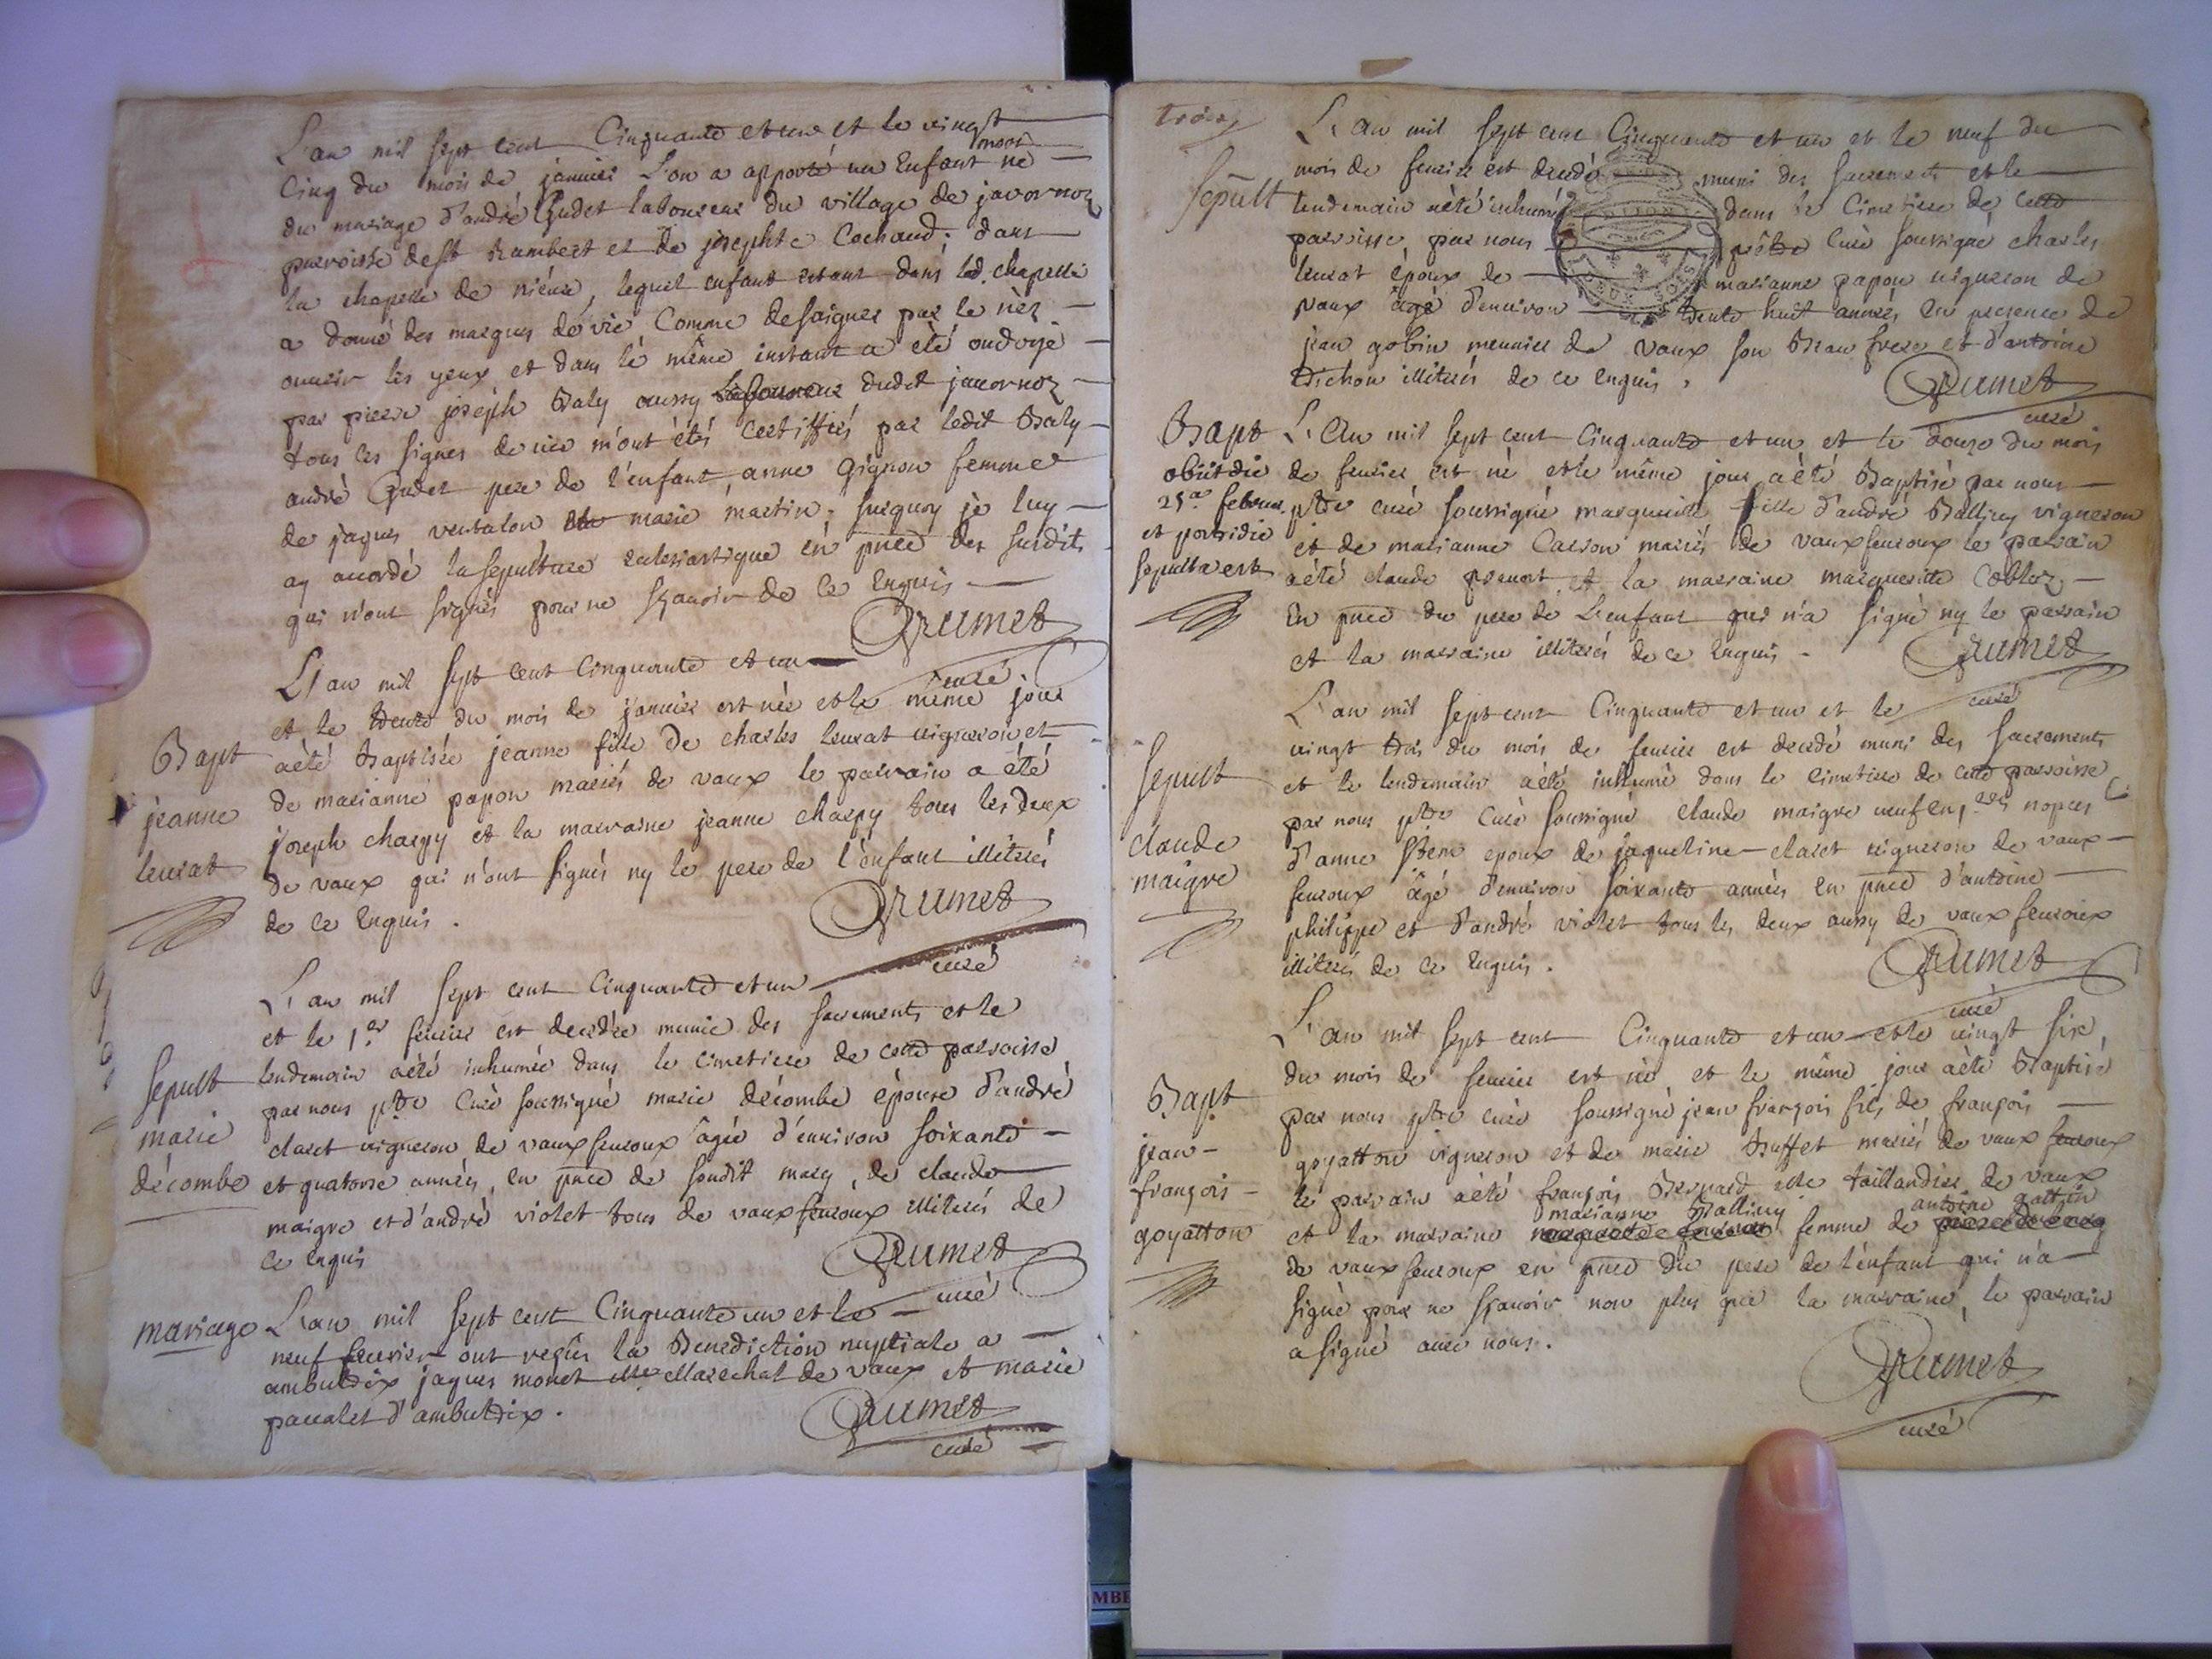 L'an mil sept cent Cinquante et un et le vingt
Cinq du mois de janvier L'on a apporté un Enfant mort né
du mariage d'andré Gudet laboureur du village de javornoz
parroisse de st Rambert et de josephte Cochaud; dans
la chapelle de niévre, lequel enfant estant dans lad. chapelle
a donné des marques de vie Comme de saigner par le néz
ouurir les yeux et dans le même instant a eté ondoyé
par pierre joseph Baly aussy laboureur dudet jauornoz
tous ces signes de vie m'ont étés Certiffiés par ledit Baly
andré Gudet pere de l'enfant, anne Gignon femme
de jaques ventalon marie martin. surquoy je luy
ay accordé la sepulture eclesiastique en pnce des susdits
qui n'ont signés pour ne sçauoir de ce Enquis
Brumet
curé
L'an mil sept cent Cinquante et un
et le trente du mois de januier est née et le même jour
Bapt
jeanne
leurat
aété Baptisée jeanne fille de charles leurat vigneron et
de marianne papon mariés de vaux le parrain a été
joseph charpy et la marraine jeanne charpy tous les deux
de vaux qui n'ont signés ny le pere de l'enfant illiterés
de ce Enquis.
Brumet
curé
L'an mil sept cent Cinquante et un
et le 1.er feurier est decedée munie des sacrements et le
sepult
marie
décombe
lendemain aété inhumée dans le cimetiere de cette parroisse
par nous ptre Curé soussigné marie décombe épouse d'andré
claret vigneron de vauxfeuroux âgée d'enuiron soixante
et quatorse années, en pnce de sondit mary, de claude
maigre et d'andré violet tous de vauxfeuroux illiterés de
ce enquis
Brumet
curé
mariage
L'an mil sept cent Cinquante un et le
neuf feurier ont reçûs la Benediction nuptiale a
ambutrix jaques monet Marechal de vaux et marie
paualet d'ambutrix.
Brumet
curé
trois
sepult
L'an mil sept cent Cinquante et un et le neuf du
mois de feurier est decedé muni des sacrements et le
lendemain aété inhumé dans le Cimetiere de cette
parroisse par nous prêtre Curé soussigné charles
leurat époux de marianne papon uigneron de
vaux âgé d'enuiron trente huit années en presence de
jean gobin meunier de vaux son Beau frere et d'antoine
trichon illiterés de ce enquis.
Brumet
curé
Bapt
obiit die
25.a februar
et postridie
sepulta est
L'An mil sept cent Cinquante et un et le douze du mois
de feurier est né et le même jour aété Baptisé par nous
ptre curé soussigné marguerite fille d'andré Balliuy vigneron
et de marianne Carron mariés de vauxfeuroux le parrain
aété claude preuost et la marraine marguerite Cobloz
En pnce du pere de L'enfant qui n'a signé ny le parrain
et la marraine illiterés de ce enquis.
Brumet
curé
L'an mil sept cent Cinquante et un et le
uingt trois du mois de feurier est decedé muni des sacrements
sepult
claude
maigre
et le lendemain aété inhumé dans le cimetiere de cette parroisse
par nous ptre Curé soussigné claude maigre ueuf en 1.eres nopces
d'anne époux de jaqueline claret uigneron de vaux
feuroux âgé d'enuiron soixante années en pnce d'antoine
philippe et d'andré violet tous les deux aussy de vauxfeuroux
illiterés de ce Enquis.
Brumet
curé
L'an mil sept cent Cinquante et un et le vingt six
du mois de feurier est né et le même jour aété Baptisé
Bapt
jean-
françois-
goyatton
par nous ptre curé soussigné jean françois fils de françois
goyatton vigneron et de marie Buffet mariés de vaux feuroux
le parrain aété françois Bernard taillandier de vaux
marianne Balliuy antoine gattin
et la marraine femme de
de vauxfeuroux en pnce du pere de l'enfant qui n'a
signé pour ne sçauoir non plus que la marraine, le parrain
a signé auec nous.
Brumet
curé